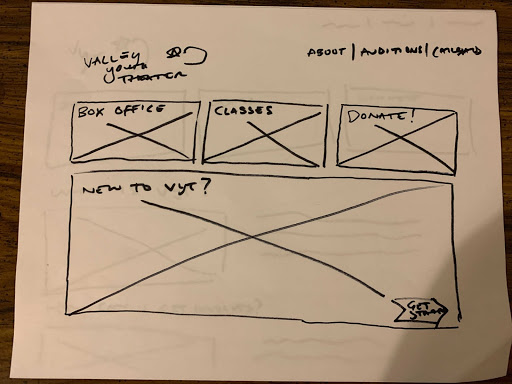 VALLEY
youth
THEATER
ABOUT | AUDITIONS |
BOX OFFICE
CLASSES
DONATE!
NEW TO VYT?
GET